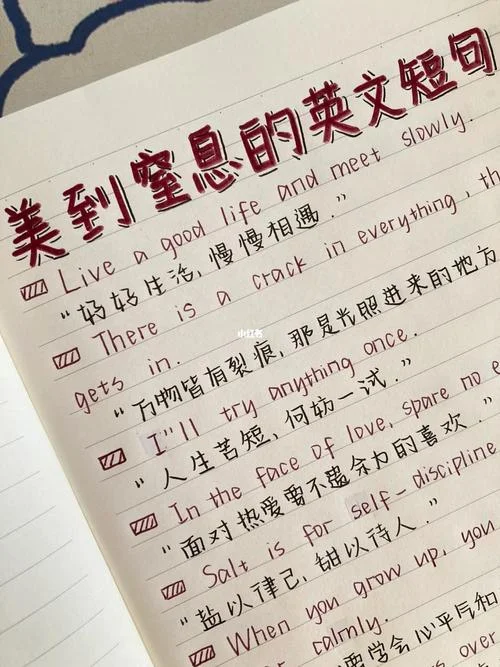 美到窒息的英文短句
Live a good life and meet slowly.
"好好生活,慢慢相遇."
There is a crack in everything, th
gets in.
"万物皆有裂痕,那是光照进来的地方
小红书
I"ll try anything once.
"人生苦短,何妨一试."
In the face of love, spare no e
"面对热爱要不遗余力的喜欢."
Salt is for self-discipline
"盐以律己,甜以待人."
When you grow up, you
calmly.
要学会心平气和
over